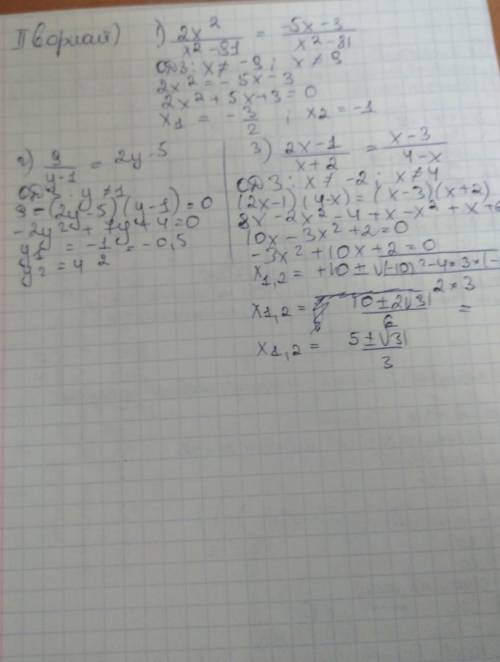 II вариант)
1) 2x²/x²-81 = -5x-3/x²-81
ОДЗ: x≠-9; x≠9
2x² = -5x-3
2x²+5x+3=0
x₁ = -3/2; x₂ = -1
2) 9/y-1 = 2y-5
ОДЗ: y≠1
9-(2y-5)(y-1)=0
-2y²+7y+4=0
y₁ = -1/2 = -0,5
y₂ = 4
3) 2x-1/x+2 = x-3/4-x
ОДЗ: x≠-2; x≠4
(2x-1)(4-x)=(x-3)(x+2)
8x-2x²-4+x-x²+x+6
10x-3x²+2=0
-3x²+10x+2=0
x₁,₂ = +10±√(-10)²-4×3×(-/2×3
x₁,₂ = 10±2√31/6 =
x₁,₂ = 5±√31/3